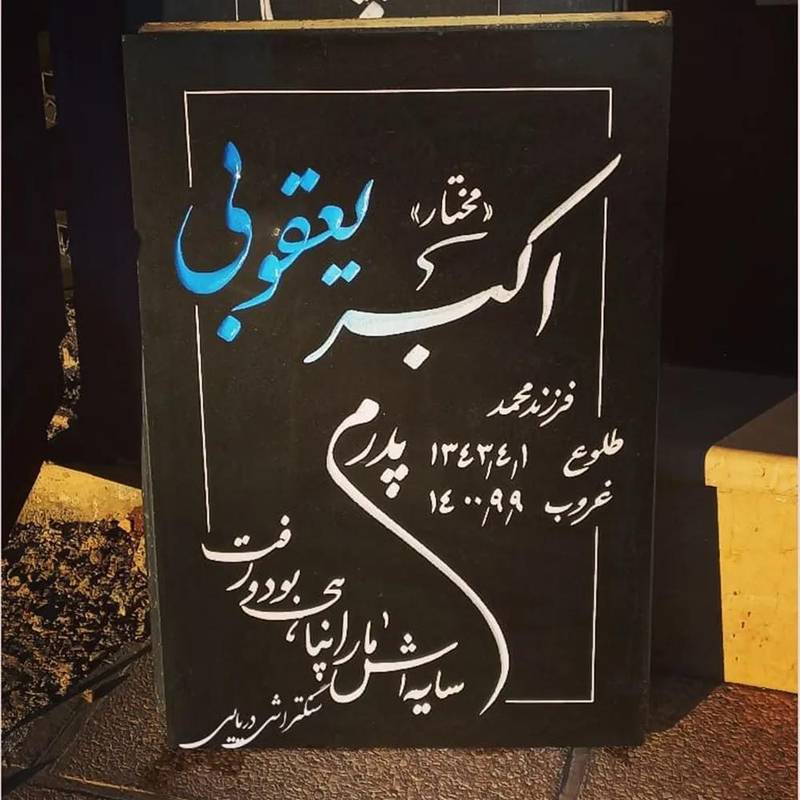 «مختار»
اکبر یعقوبی
فرزند محمد
طلوع ۱۳۴۳٫۴٫۱
غروب ۱۴۰۰٫۹٫۹
پدرم
سایه اش ما را پناهی بود و رفت
سنگتراشی دریایی